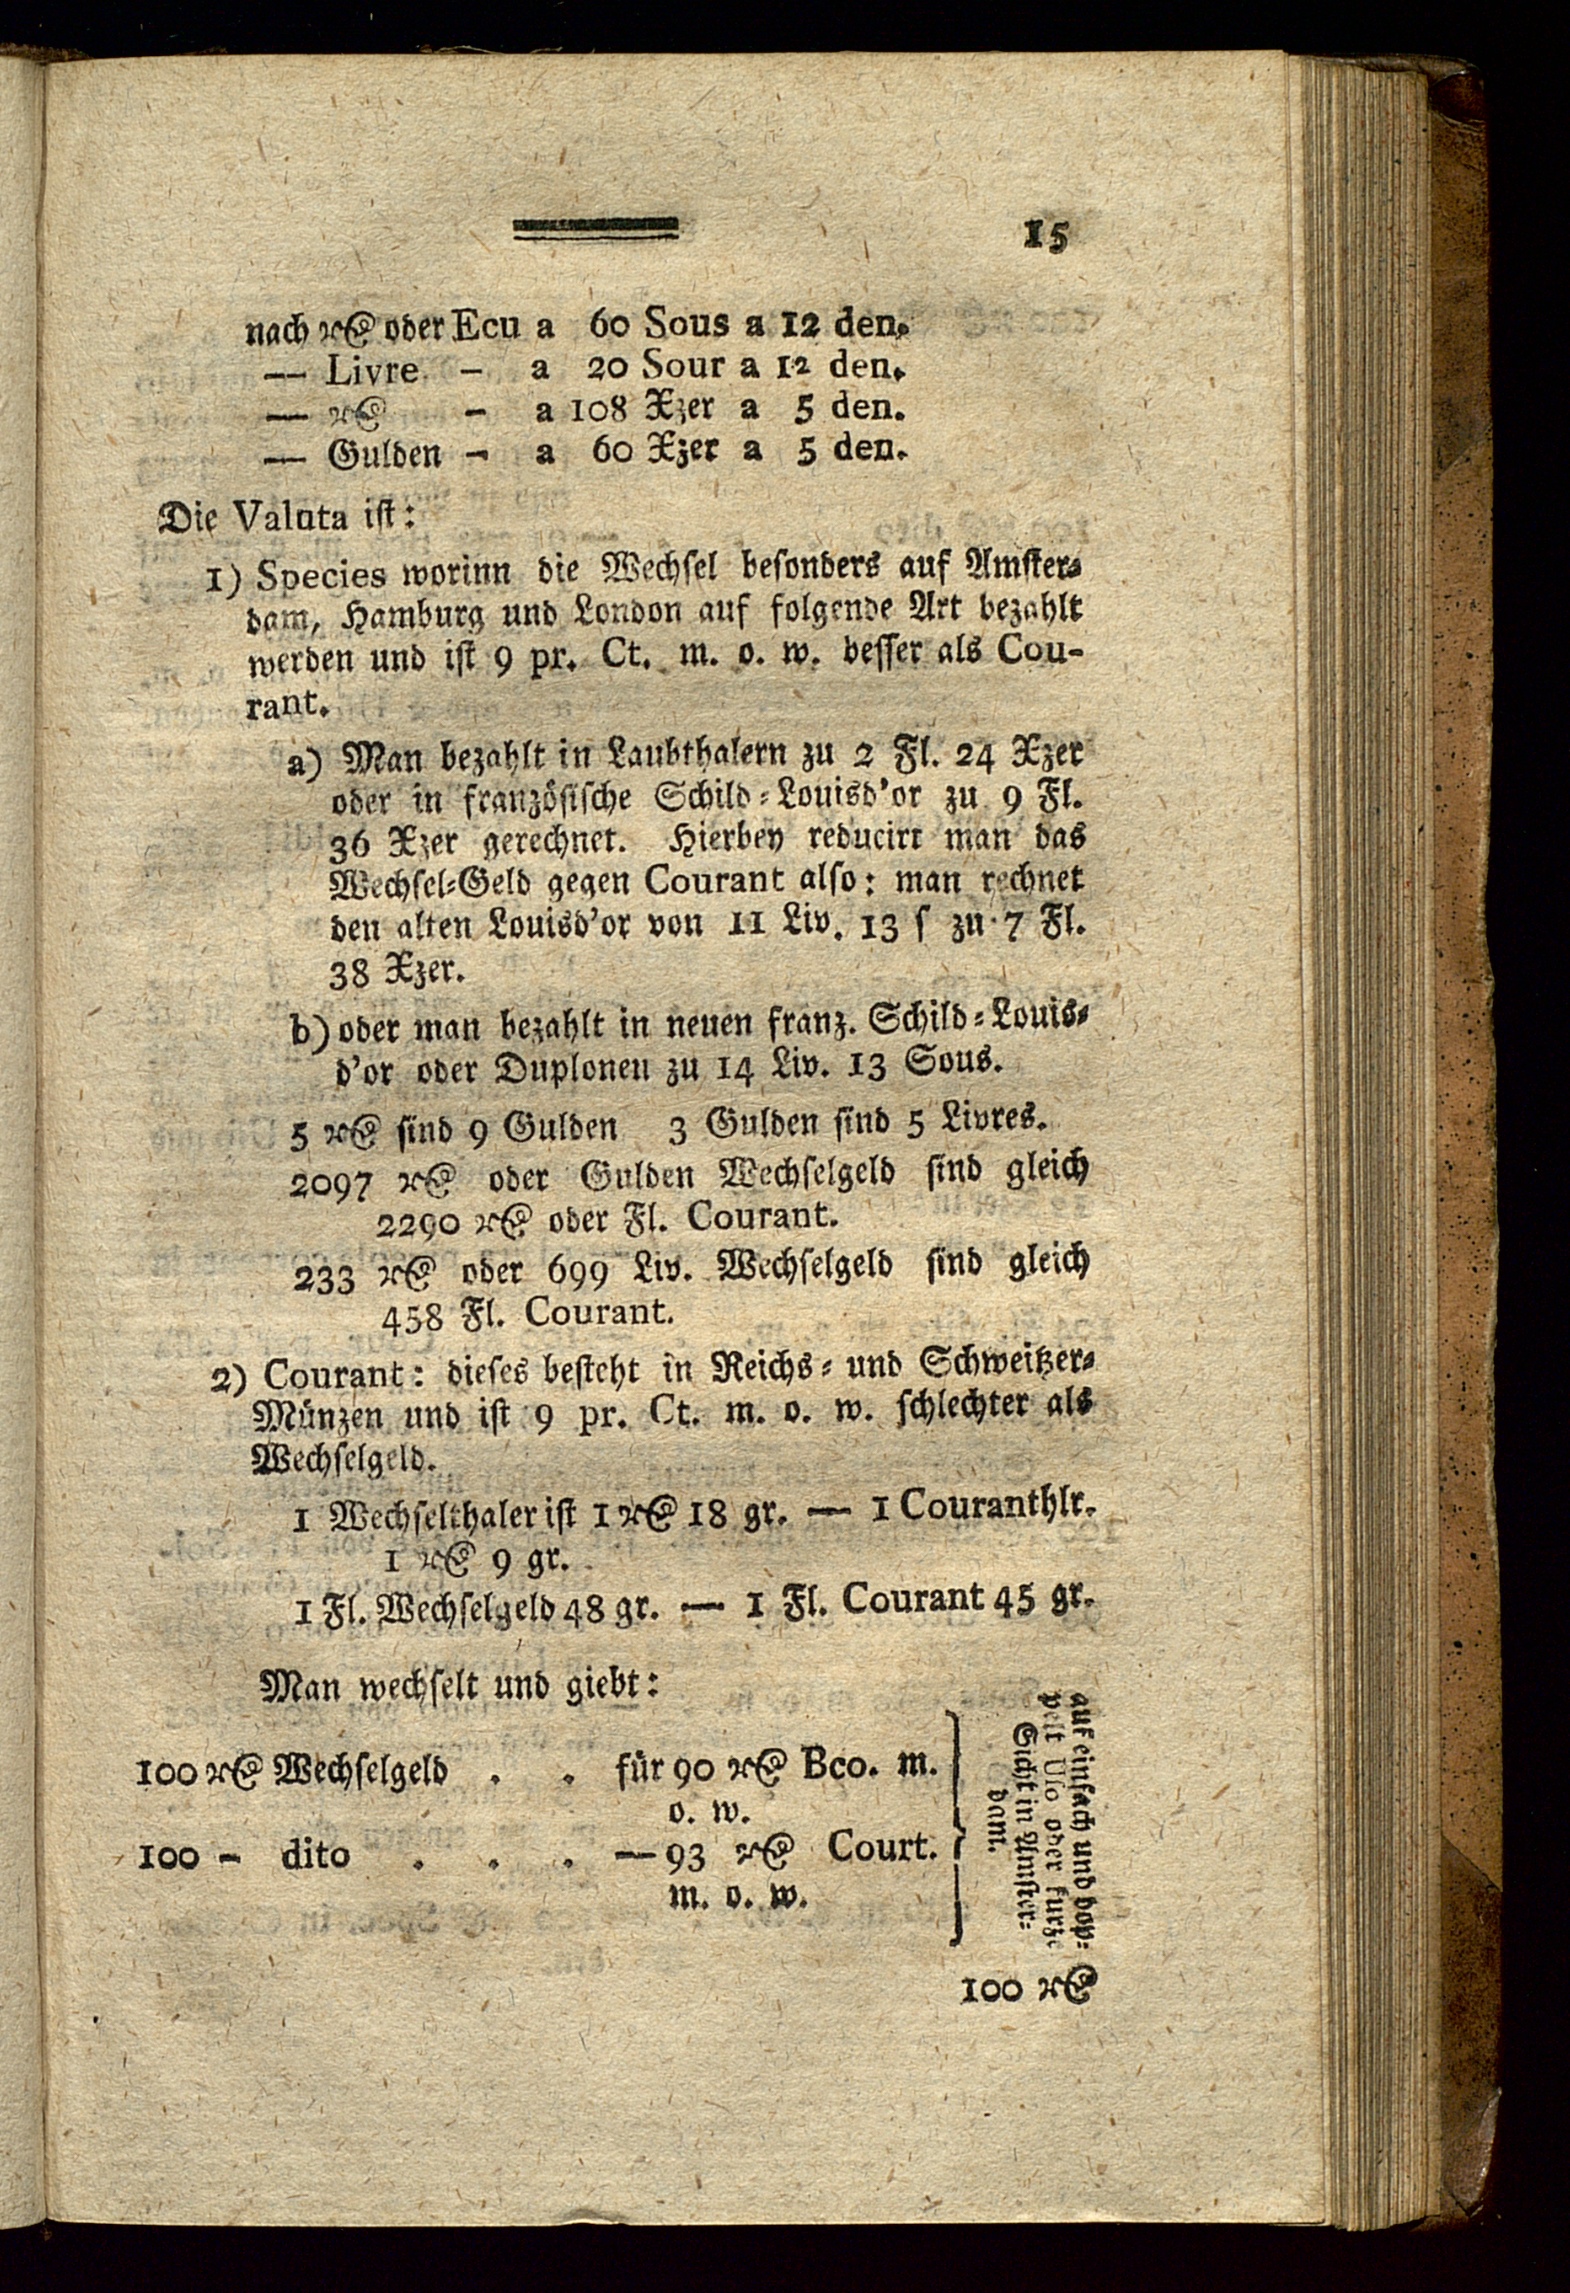 15
nach rthl oder Ecu a 60 Sous a 12 den.
— Livre - a 20 Sour a 12 den.
— rthl - a 108 Xzer a 5 den.
— Gulden - a 60 Xzer a 5 den.
Die Valuta ist:
1) Species worinn die Wechsel besonders auf Amster-
dam, Hamburg und London auf folgende Art bezahlt
werden und ist 9 pr. Ct. m. o. w. besser als Cou-
rant.
a) Man bezahlt in Laubthalern zu 2 Fl. 24 Xzer
oder in französische Schild-Louisd'or zu 9 Fl.
36 Xzer gerechnet. Hierbey reducirt man das
Wechsel-Geld gegen Courant also: man rechnet
den alten Louisd'or von 11 Liv. 13 ſ zu 7 Fl.
38 Xzer.
b) oder man bezahlt in neuen franz. Schild-Louis-
d'or oder Duplonen zu 14 Liv. 13 Sous.
5 rthl sind 9 Gulden 3 Gulden sind 5 Livres.
2097 rthl oder Gulden Wechselgeld sind gleich
2290 rthl oder Fl. Courant.
233 rthl oder 699 Liv. Wechselgeld sind gleich
458 Fl. Courant.
2) Courant: dieses besteht in Reichs- und Schweitzer-
Münzen und ist 9 pr. Ct. m. o. w. schlechter als
Wechselgeld.
1 Wechselthaler ist 1 rthl 18 gr. — 1 Couranthlr.
1 rthl 9 gr.
1 Fl. Wechselgeld 48 gr. — 1 Fl. Courant 45 gr.
Man wechselt und giebt:
100 rthl Wechselgeld . . für 90 rthl Bco. m.
o. w.
100 - dito . . . — 93 rthl Court.
m. o. w.
auf einfach und dop-
pelt Uso oder kurze
Sicht in Amster-
dam.
100 rthl